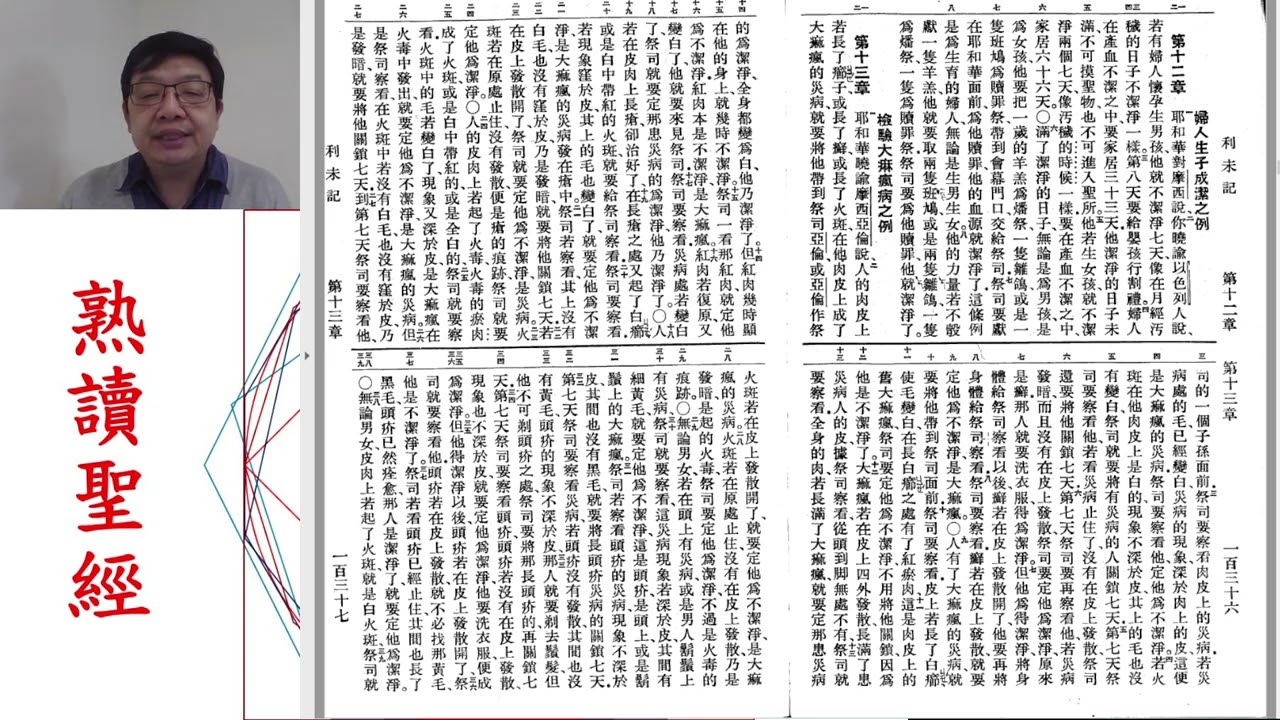 熟讀聖經
利未記 第十二章 第十三章 一百三十六
第十二章 婦人生子成潔之例
耶和華對摩西說、你曉諭以色列人說、
若有婦人懷孕生男孩、他就不潔淨七天、像在月經污
穢的日子不潔淨一樣。第八天要給嬰孩行割禮。婦人
在產血不潔之中、要家居三十三天。他潔淨的日子未
滿、不可摸聖物、也不可進入聖所。他若生女孩、就不潔
淨兩個七天、像污穢的時候一樣、要在產血不潔之中、
家居六十六天。○滿了潔淨的日子、無論是爲男孩是
爲女孩、他要把一歲的羊羔爲燔祭、一隻雛鴿或是一
隻班鳩爲贖罪祭、帶到會幕門口交給祭司。祭司要獻
在耶和華面前、爲他贖罪、他的血源就潔淨了。這條例
是爲生育的婦人、無論是生男生女。他的力量若不彀
獻一隻羊羔、他就要取兩隻班鳩或是兩隻雛鴿、一隻
爲燔祭、一隻爲贖罪祭。祭司要爲他贖罪、他就潔淨了。
第十三章 檢驗大痳瘋病之例
耶和華曉諭摩西亞倫說、人的肉皮上
若長了癤子、或長了癬、或長了火斑、在他肉皮上成了
大痳瘋的災病、就要將他帶到祭司亞倫、或亞倫作祭
司的一個子孫面前。祭司要察看肉皮上的災病、若災
病處的毛已經變白、災病的現象深於肉上的皮、這便
是大痳瘋的災病。祭司要察看他、定他爲不潔淨。若火
斑在他肉皮上是白的、現象不深於皮、其上的毛也沒
有變白、祭司就要將有災病的人關鎖七天。第七天祭
司要察看他、若看災病止住了、沒有在皮上發散、祭司
還要將他關鎖七天。第七天祭司要再察看他、若災病
發暗、而且沒有在皮上發散、祭司要定他爲潔淨、原來
是癬、那人就要洗衣服、得爲潔淨。但他爲得潔淨、將身
體給祭司察看以後、癬若在皮上發散開了、他要再將
身體給祭司察看。祭司要察看、癬若在皮上發散、就要
定他爲不潔淨、是大痳瘋。○人有了大痳瘋的災病、就
要將他帶到祭司面前。祭司要察看、皮上若長了白癤、
使毛變白、在長白癤之處有了紅瘀肉、這是肉皮上的
舊大痳瘋、祭司要定他爲不潔淨、不用將他關鎖、因爲
他是不潔淨了。大痳瘋若在皮上四外發散、長滿了患
災病人的皮、據祭司察看、從頭到脚無處不有、祭司就
要察看、全身的肉若長滿了大痳瘋、就要定那患災病
利未記 第十三章 一百三十七
的爲潔淨、全身都變爲白、他乃潔淨了。但紅肉幾時顯
在他的身上、就幾時不潔淨。祭司一看那紅肉就定他
爲不潔淨、紅肉本是不潔淨、是大痳瘋。紅肉若復原、又
變白了、他就要來見祭司。祭司要察看、災病處若變白
了、祭司就要定那患災病的爲潔淨、他乃潔淨了。○人
若在皮肉上長瘡、卻治好了、在長瘡之處又起了白癤、
或是白中帶紅的火斑、就要給祭司察看。祭司要察看、
若現象窪於皮、其上的毛也變白了、就要定他爲不潔
淨、是大痳瘋的災病發在瘡中。祭司若察看、其上沒有
白毛、也沒有窪於皮、乃是發暗、就要將他關鎖七天。若
在皮上發散開了、祭司就要定他爲不潔淨、是災病。火
斑若在原處止住、沒有發散、便是瘡的痕跡、祭司就要
定他爲潔淨。○人的皮肉上若起了火毒、火毒的瘀肉
成了火斑、或是白中帶紅的、或是全白的、祭司就要察
看、火斑中的毛若變白了、現象又深於皮、是大痳瘋在
火毒中發出、就要定他爲不潔淨、是大痳瘋的災病。但
是祭司察看、在火斑中若沒有白毛、也沒有窪於皮、乃
是發暗、就要將他關鎖七天。到第七天、祭司要察看他、
火斑若在皮上發散開了、就要定他爲不潔淨、是大痳
瘋的災病。火斑若在原處止住、沒有在皮上發散、乃是
發暗、是起的火毒、祭司要定他爲潔淨、不過是火毒的
痕跡。○無論男女、若在頭上有災病、或是男人鬍鬚上
有災病、祭司就要察看、這災病現象若深於皮、其間有
細黃毛、就要定他爲不潔淨、這是頭疥、是頭上或是鬍
鬚上的大痳瘋。祭司若察看頭疥的災病、現象不深於
皮、其間也沒有黑毛、就要將長頭疥災病的關鎖七天。
第七天祭司要察看災病、若頭疥沒有發散、其間也沒
有黃毛、頭疥的現象不深於皮、那人就要剃去鬚髮、但
他不可剃頭疥之處、祭司要將那長頭疥的、再關鎖七
天。第七天、祭司要察看頭疥、頭疥若沒有在皮上發散、
現象也不深於皮、就要定他爲潔淨、他要洗衣服、便成
爲潔淨。但他得潔淨以後、頭疥若在皮上發散開了、祭
司就要察看他、頭疥若在皮上發散、就不必找那黃毛、
他是不潔淨了。祭司若看頭疥已經止住、其間也長了
黑毛、頭疥已然痊愈、那人是潔淨了、就要定他爲潔淨。
○無論男女、皮肉上若起了火斑、就是白火斑、祭司就